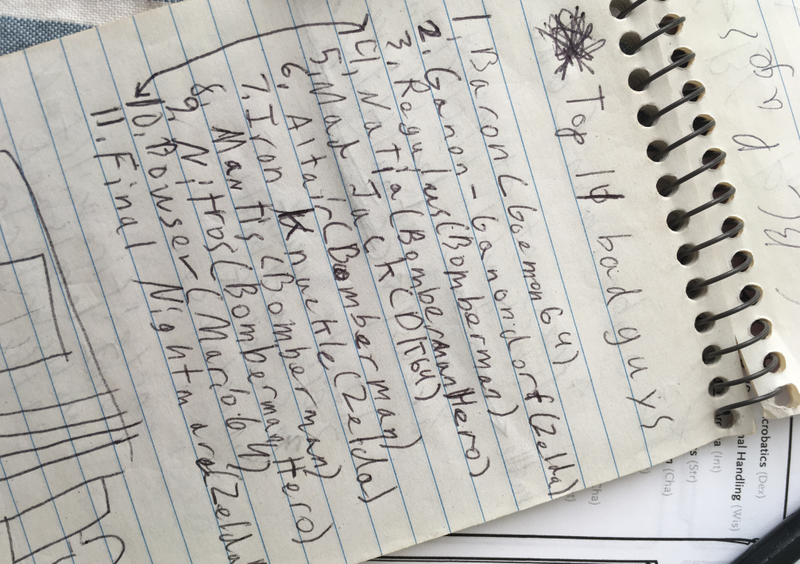 Top 11 bad guys
1 Baron (Goemon 64)
2. Ganon-Ganondorf (Zelda)
3. Regulus (Bomberman)
4. Natia (Bomberman Hero)
5. Mad Jack (DK64)
6. Altair (Bomberman)
7. Iron Knuckle (Zelda)
8. Mantis (Bomberman)
9. Nitros (Bomberman Hero)
10. Bowser (Mario 64)
11. Final Nightmare (Zelda
crobatics (Dex)
nal Handling (Wis)
a (Int)
s (Str)
(Cha)